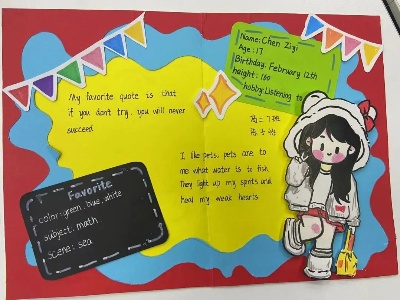 Name: Chen Ziyi
Age: 17
Birthday: February 12th
height: 160
hobby: Listening to
My favorite quote is that
if you don't try, you will never
succeed
I like pets, pets are to
me what water is to fish.
They light up my spirits and
heal my weak hearts
Favorite
color: green, blue, white
subject: math
scene: sea